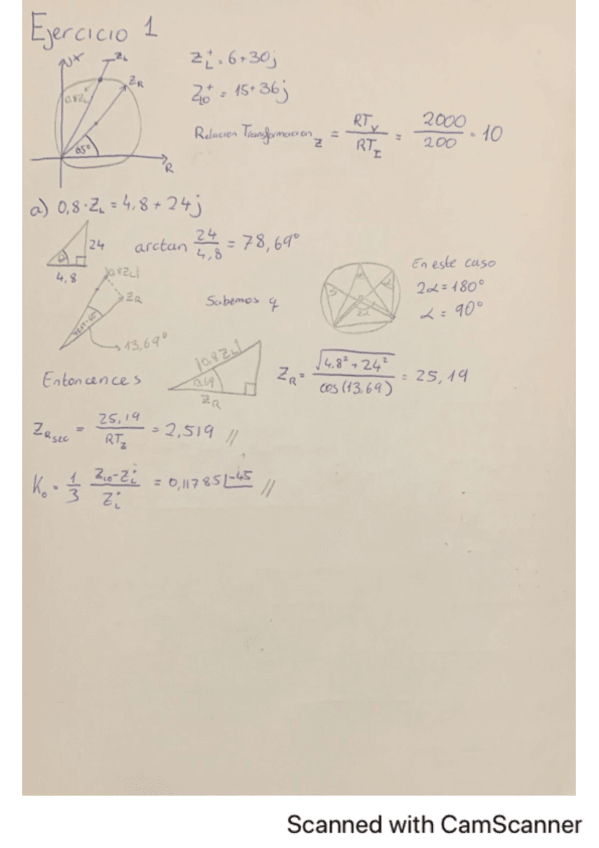 Ejercicio 1
jX
Z_L
Z_R
0.8Z_L
65°
R
Z_L^+ = 6+30j
Z_L0^+ = 15+36j
Relacion Transformacion_Z = RT_V / RT_I = 2000 / 200 = 10
a) 0,8·Z_L = 4.8 + 24j
24
4,8
arctan 24/4,8 = 78,69°
|0.8Z_L|
Z_R
13,69°
Sabemos q
2α
En este caso
2α = 180°
α = 90°
Entoncences
|0.8Z_L|
13,69
Z_R
Z_R = √(4.8² + 24²) / cos(13.69) = 25,19
Z_Rsec = 25,19 / RT_Z = 2,519 //
K_0 = 1/3 (Z_L0 - Z_L^+) / Z_L^+ = 0,11785 |-45 //
Scanned with CamScanner